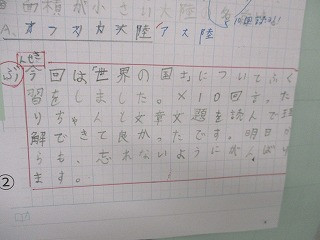 面積が小さい大陸
A、オーストラリア大陸
んせき
ふ 今回は「世界の国々」についてふく
習をしました。×10回を、た
りちゃんと文章文題を読んで理
解できて良かったです。明日か
らも、忘れないようにがんばり
ます。
②